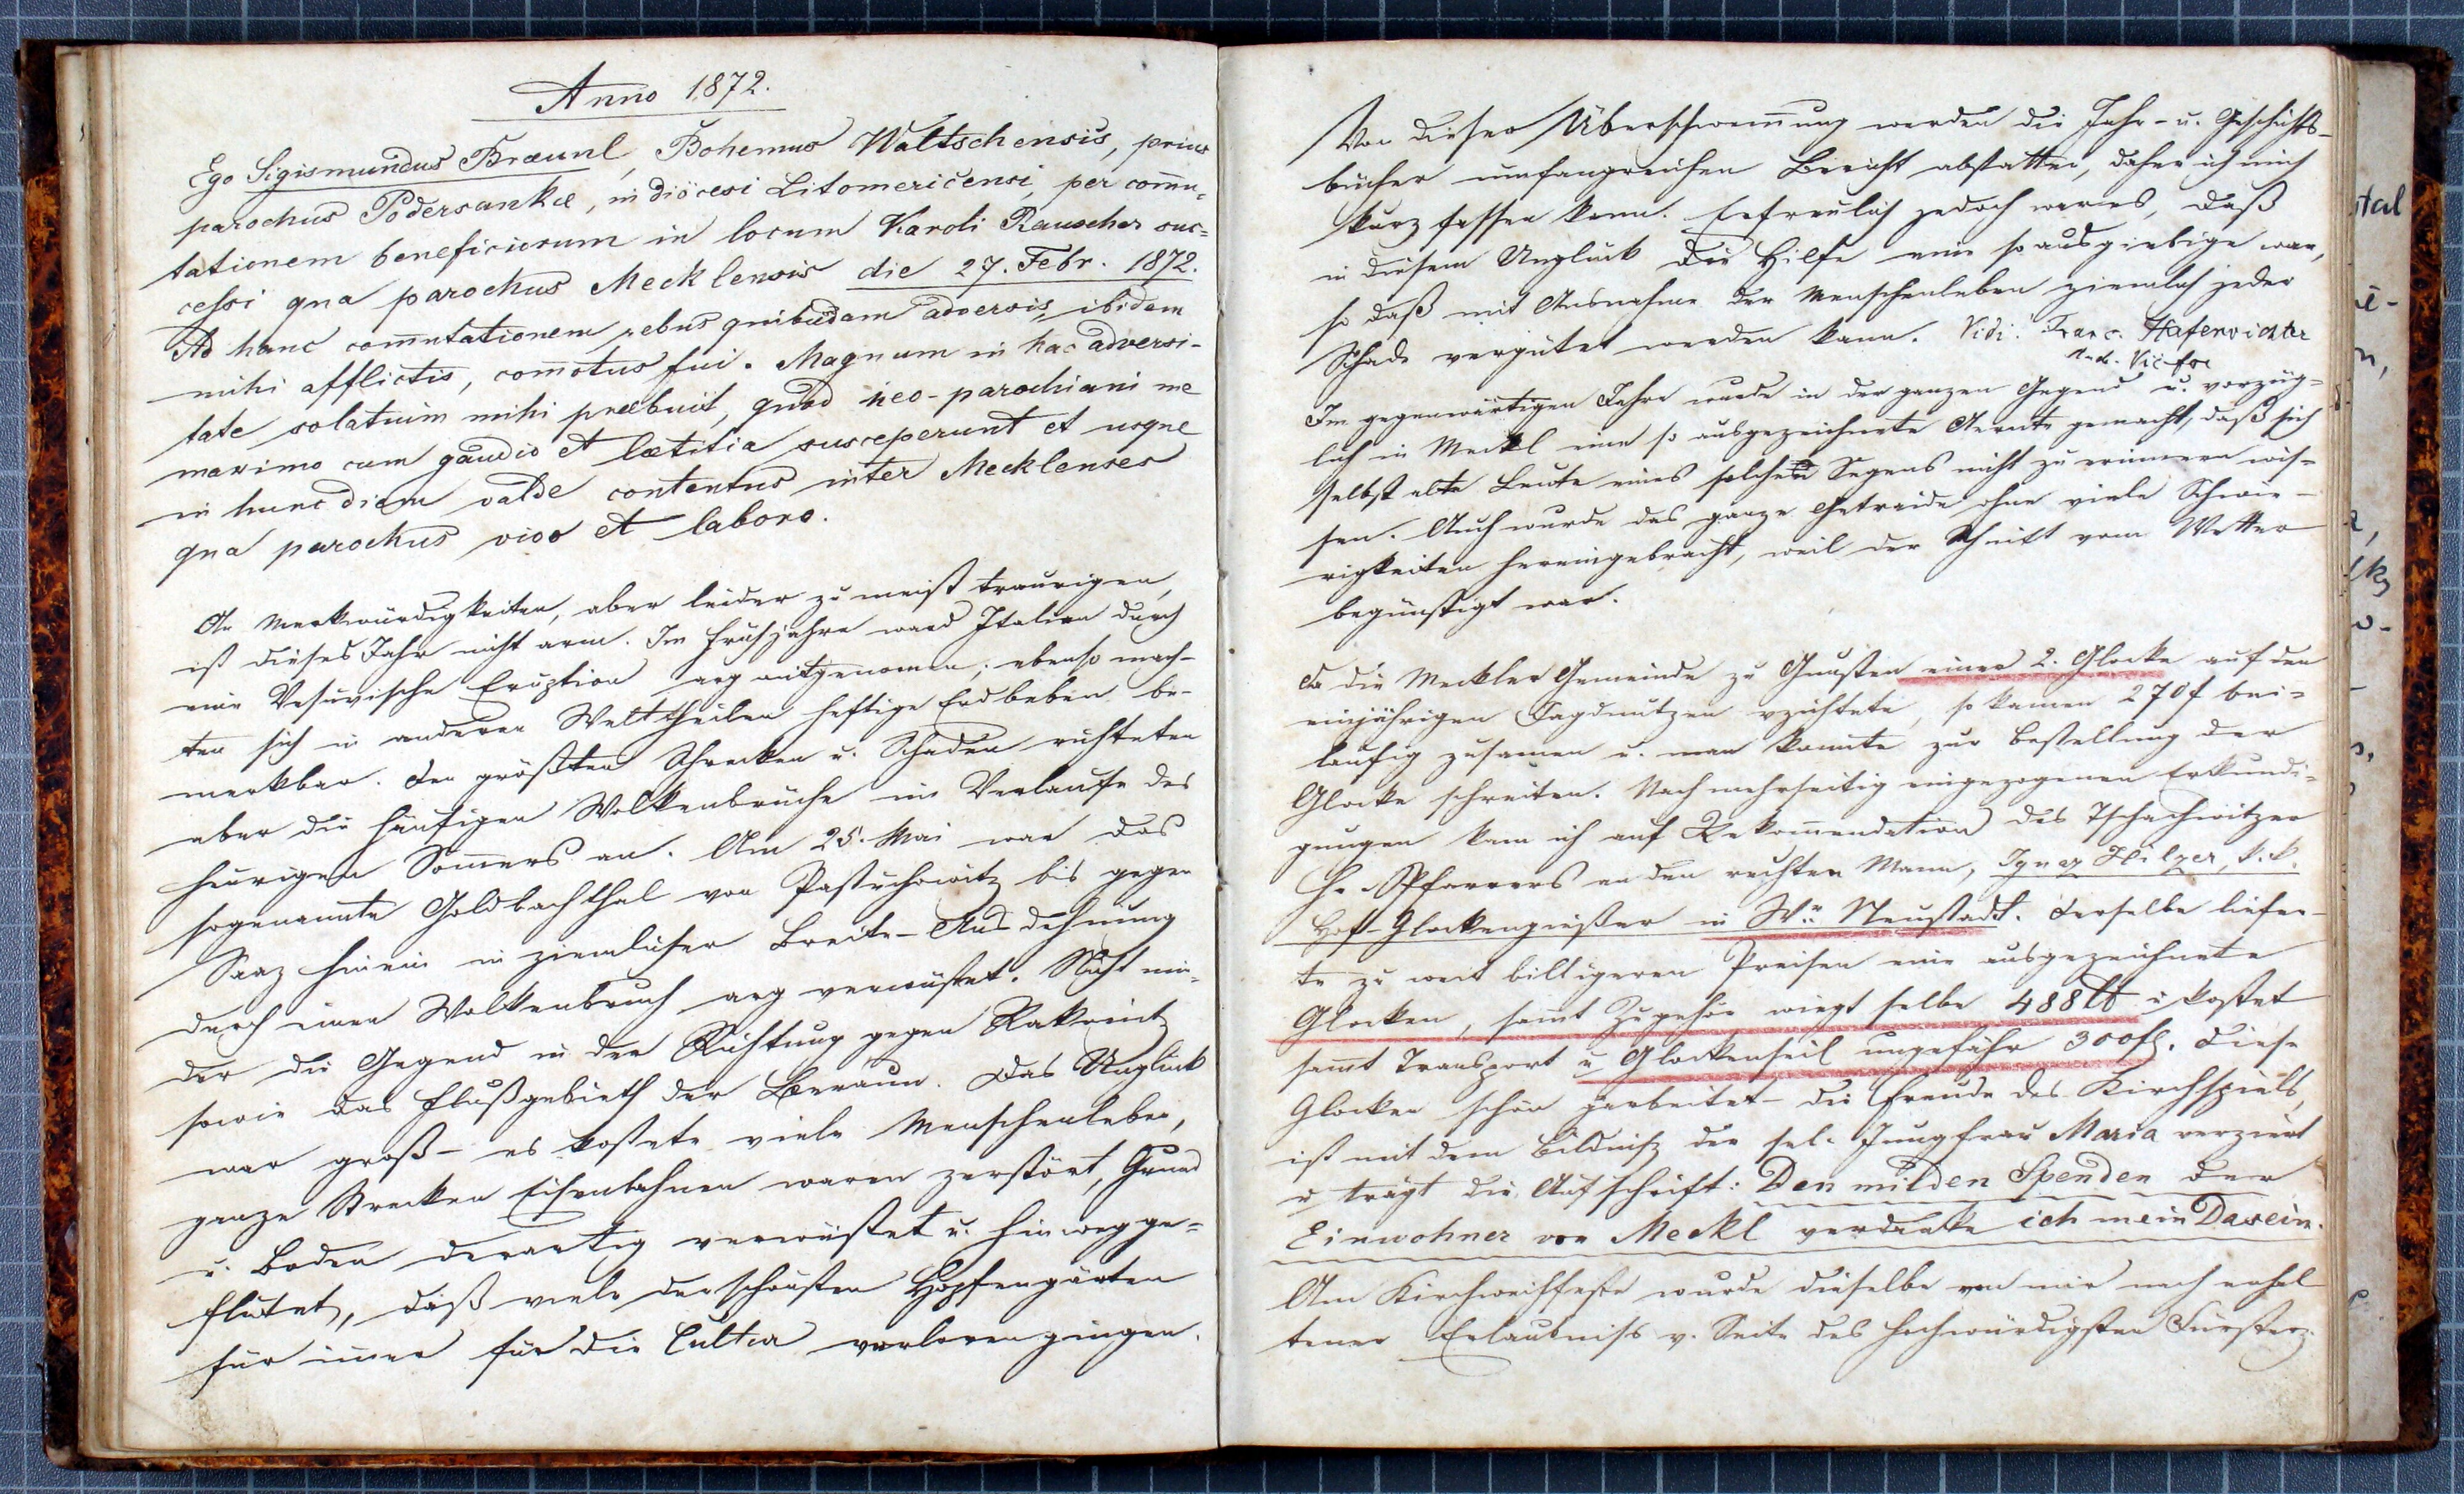 Anno 1872.
Ego Sigismundus Bræunl, Bohemus Waltschensis, prius
parochus Podersankæ, in diöcesi Litomeričensi, per com̅u-
tationem beneficiorum in locum Karoli Rauscher suc=
cessi qua parochus Mecklensis die 27. Febr. 1872.
Ad hanc com̅utationem rebus quibusdam adversis, ibidem
mihi afflictis, com̅otus fui. Magnum in hac adversi-
tate solatium mihi præbuit, quod neo-parochiani me
maximo cum gaudio et lætitia susceperunt et usque
in hunc diem valde contentus inter Mecklenses
qua parochus vivo et laboro.
An Merkwürdigkeiten, aber leider zu meist traurigen,
ist dieses Jahr nicht arm. Im Frühjahre ward Italien durch
eine Vesuvische Eruption arg mitgenom̅en; ebenso mach-
ten sich in anderen Welttheilen heftige Erdbeben be-
merkbar. Den größten Schrecken u. Schaden richteten
aber die häufigen Wolkenbrüche im Verlaufe des
heurigen Som̅ers an. Am 25. Mai war das
sogenannte Goldbachthal von Pastuchowitz bis gegen
Saaz hinein in ziemlicher Breite-Ausdehnung
durch einen Wolkenbruch arg verwüstet. Nicht min-
der die Gegend in der Richtung gegen Rakonitz
sowie das Flußgebieth der Beraun. Das Unglück
war groß – es kostete viele Menschenleben,
ganze Strecken Eisenbahnen waren zerstört, Grund
u. Boden derartig verwüstet u. hinwegge=
flutet, daß viele der schönsten Hopfengärten
für im̅er für die Cultur verloren gingen.
Von dieser Überschwem̅ung werden die Jahr- u. Geschichts-
bücher umfangreichen Bericht abstatten, daher ich mich
kurz fassen kann. Erfreulich jedoch war es, daß
in diesem Unglück die Hilfe eine so ausgiebige war,
so daß mit Ausnahme der Menschenleben ziemlich jeder
Schade vergütet werden kann. Vidi: Franc. Hafenrichter
Vic-for
Im gegenwärtigen Jahre wurde in der ganzen Gegend u. vorzüg=
lich in Meckl eine so ausgezeichnete Aernte gemacht, daß sich
selbst alte Leute eines solchen Segens nicht zu erinnern wis=
sen. Auch wurde das ganze Getreide ohne viele Schwie-
rigkeiten hereingebracht, weil der Schnitt vom Wetter
begünstigt war.
Da die Meckler Gemeinde zu Gunsten einer 2. Glocke auf den
einjährigen Jagdnutzen verzichtete, so kamen 270f bei=
läufig zusam̅en u. man konnte zur Bestellung der
Glocke schreiten. Nach mehrseitig eingezogenen Erkundi=
gungen kam ich auf Rekom̅endation des Tschachwitzer
H. Pfarrers an den rechten Mann, Ignaz Hilzer, k. k.
Hof-Glockengießer in Wr Neustadt. Derselbe liefer-
te zu weit billigeren Preisen eine ausgezeichnete
Glocken, sam̅t Zugehör wiegt selbe 488 ℔ u. kostet
sam̅t Transport u. Glockenseil ungefähr 300fl. Diese
Glocken schön gearbeitet – die Freude des Kirchspiels,
ist mit dem Bildniß der sel. Jungfrau Maria verziert
u. trägt die Aufschrift: Den milden Spenden der
Einwohner von Meckl verdanke ich mein Dasein.
Am Kirchweihfeste wurde dieselbe von mir nach erhal
tener Erlaubniß v. Seite des hochwürdigsten Fürsterz-